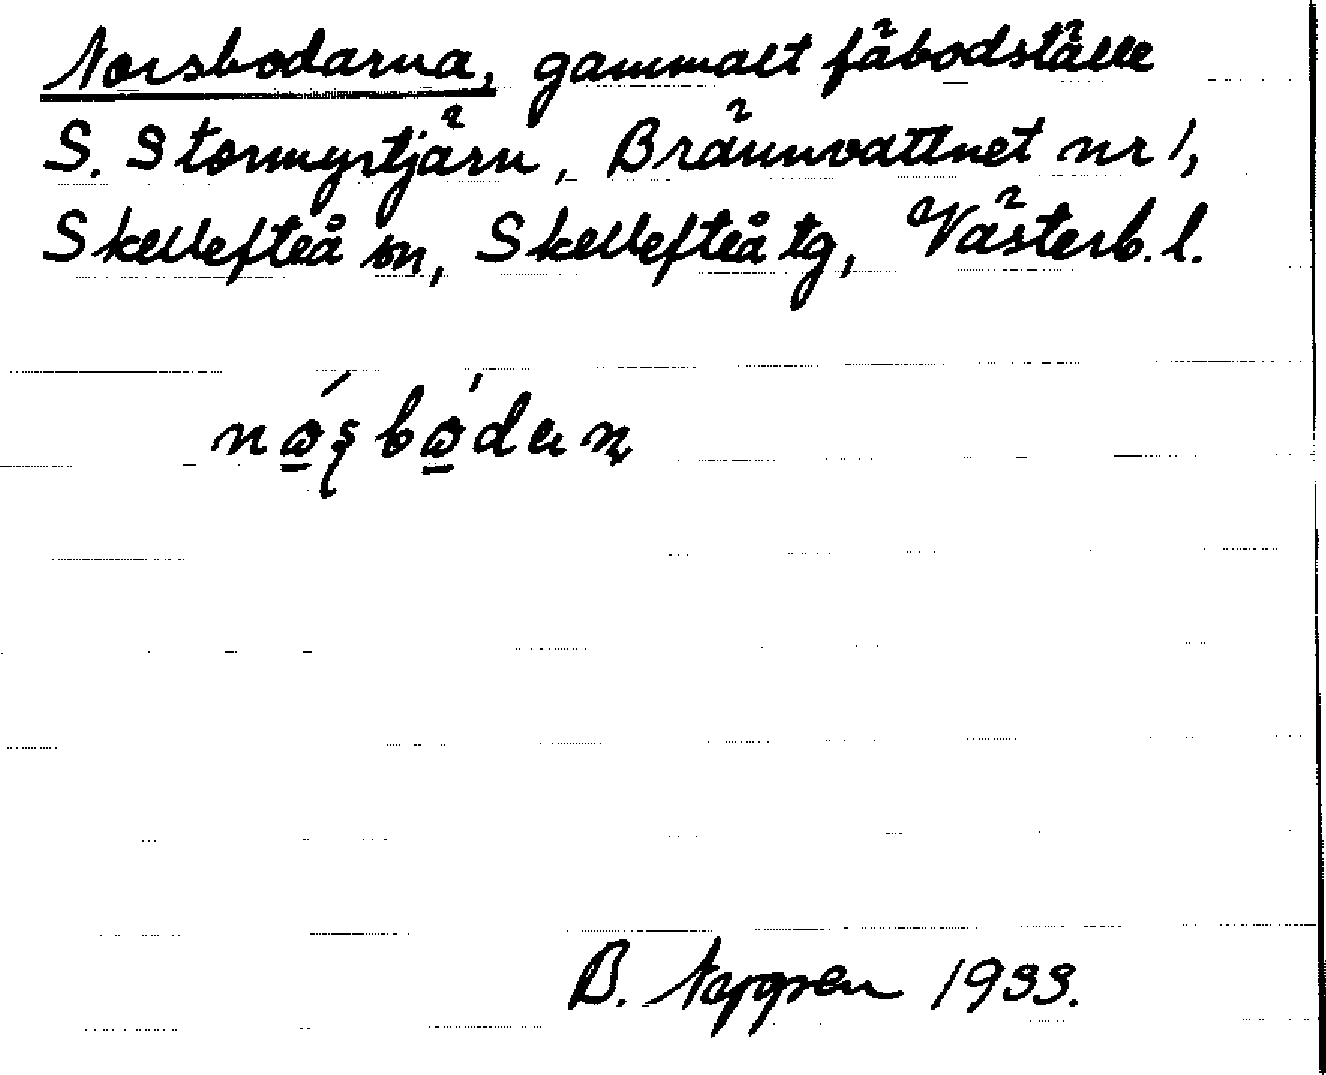 Norsbodarna, gammalt fäbodställe
S. Stormyrtjärn, Brännvattnet nr 1,
Skellefteå sn, Skellefteå tg, Västerb. l.
B. 1933.